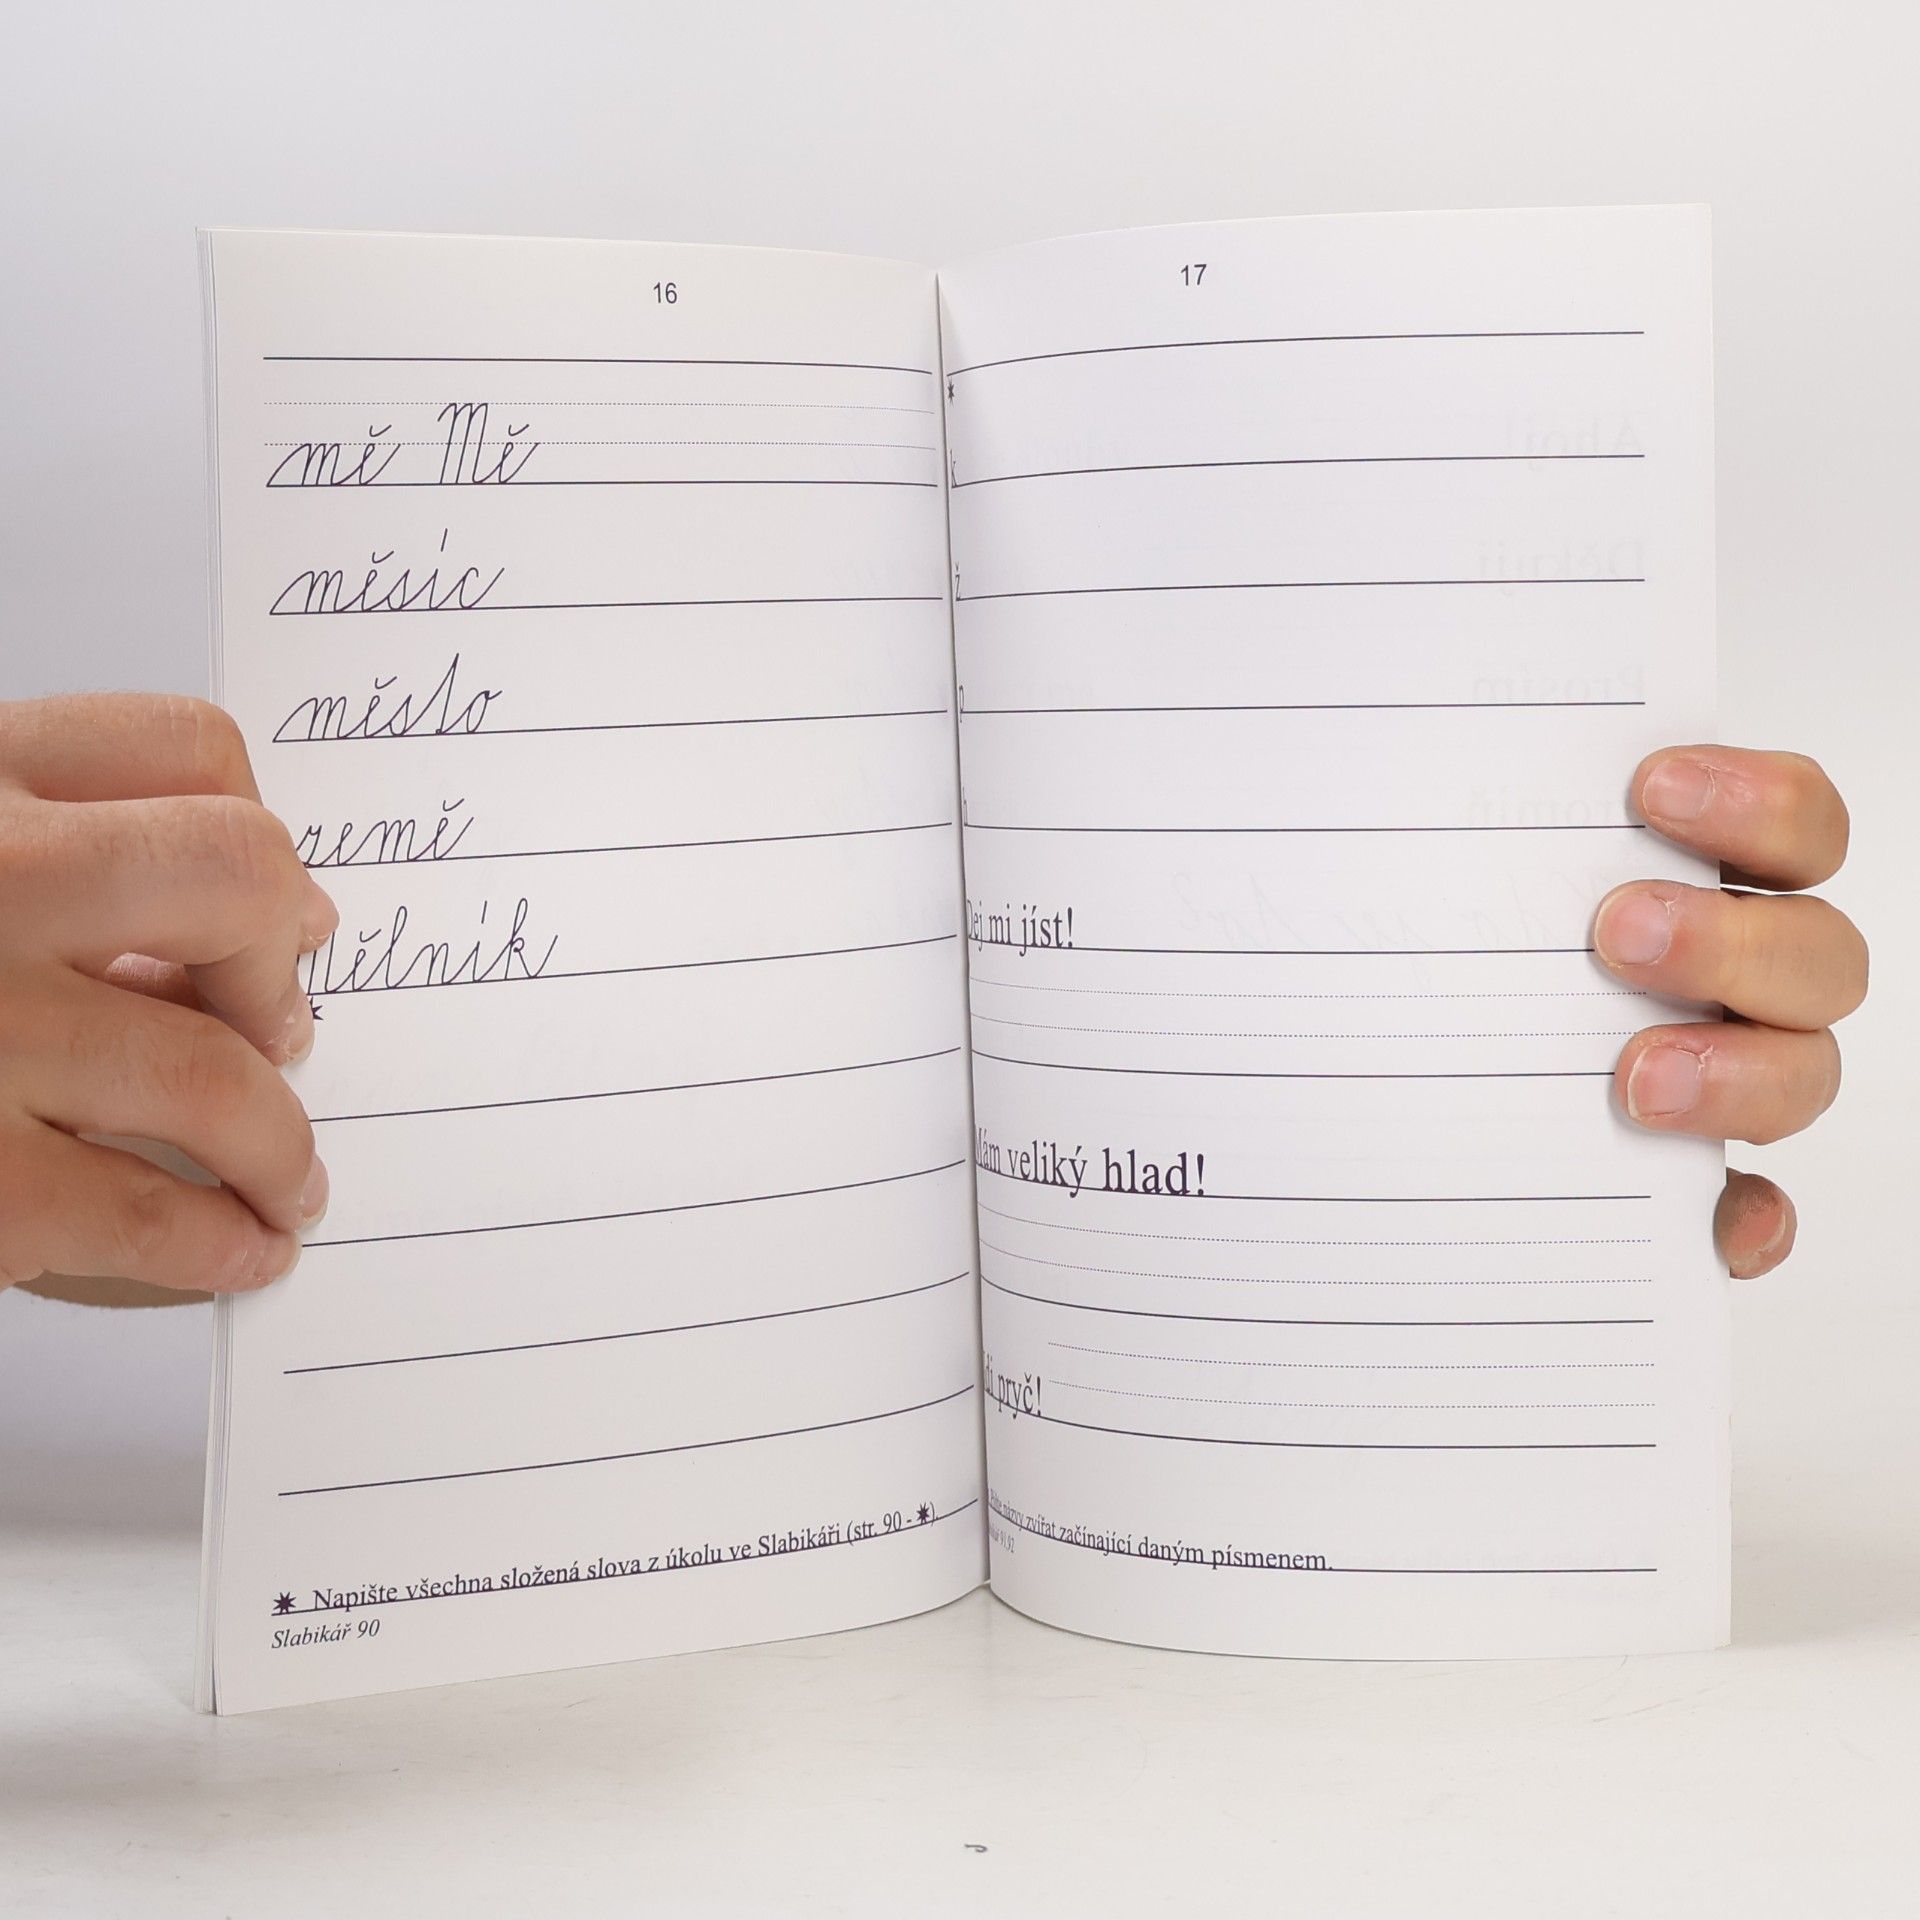 16
mě Mě
měsíc
město
země
Mělník
✷
✷ Napište všechna složená slova z úkolu ve Slabikáři (str. 90 - ✷).
Slabikář 90
17
✷
k
ž
p
h
Dej mi jíst!
Mám veliký hlad!
Jdi pryč!
názvy zvířat začínající daným písmenem.